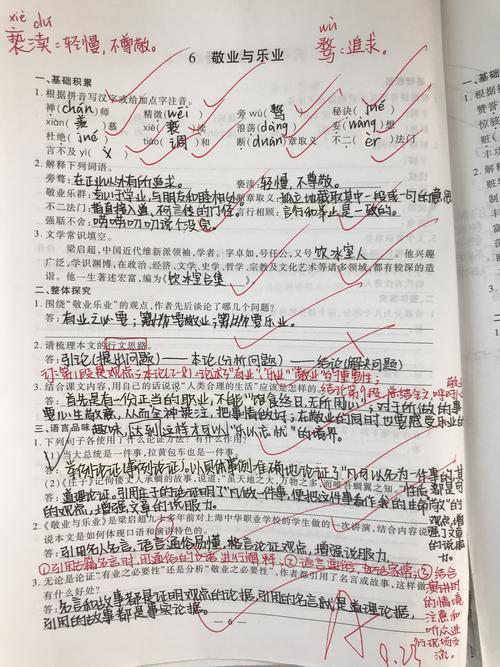 xiè dú
亵渎:轻慢,不尊敬。
wù
骛:追求。
6 敬业与乐业
一、基础积累
1. 根据拼音写汉字或给加点字注音。
禅(chán)师 精微(wēi) 旁wù(骛) 秘诀(jué)
xiàn(羡)慕 xiè(亵)渎 浪荡(dàng) 妄(wàng)想
杜绝(jué) tiáo(调)和 断(duàn)章取义 不二(èr)法门
言不及yì(义)
2. 解释下列词语。
旁骛:在正业以外有所追求。 亵渎:轻慢,不尊敬。
不二法门:指直接入道,不可言传的门径。言行相顾:言行和举止是一致的。
强聒不舍:唠唠叨叨说个没完。
3. 文学常识填空。
梁启超,中国近代维新派领袖,学者。字卓如,号任公,又号饮冰室主人。他兴趣
广泛,学识渊博,在政治、经济、文学、史学、哲学、宗教及文化艺术等诸多领域,都有较深的造
诣。他一生著述宏富,编为《饮冰室合集》
二、整体探究
1. 围绕“敬业乐业”的观点,作者先后谈论了哪几个问题?
答:有业之必要;第二要敬业;第三要乐业。
2. 请梳理本文的行文思路。
答:引论(提出问题)——本论(分析问题)——结论(解决问题)
3. 结合课文内容,用自己的话说说“人类合理的生活”应该是怎样的。
答:首先是有一份正当的职业,不能“饱食终日,无所用心”;对于所做的事
要心生敬意,从而全神贯注,把事情做好;在敬业的同时也要感受乐业的
趣味,达到这样才可以“乐以忘忧”的境界。
三、语言品味
1. 下列句子各使用了什么论证方法?有什么作用?
(1)当大总统是一件事,拉黄包车也是一件事。
答:举例论证(事例论证),以具体事例准确地论证了“凡可以名为一件事的其
性质都是可敬的”观点,增强了文章的说服力。
(2)《庄子》记佝偻丈人承蜩的故事,说道:“虽天地之大,万物之多,而唯吾蜩翼之知。”
答:道理论证。引用庄子的话证明了“凡做一件事,便把这件事看作我的生命”
的观点,增强文章的说服力。
2.《敬业与乐业》是梁启超九十多年前对上海中华职业学校的学生做的一次讲演,结合内容说
说本文是如何体现口语和演讲特色的。
答:引用名人名言,语言通俗易懂,格言论证观点,增强说服力。
3. 无论是论证“有业之必要性”还是分析“敬业之必要性”,作者都引用了名言或故事,这样做
有什么好处?
答:名言和故事都是证明观点的论据,引用的名言就是道理论据,
引用的故事都是事实论据。
③结合演讲时的情境,注意和听众进行现场交流。
6
A
9.25